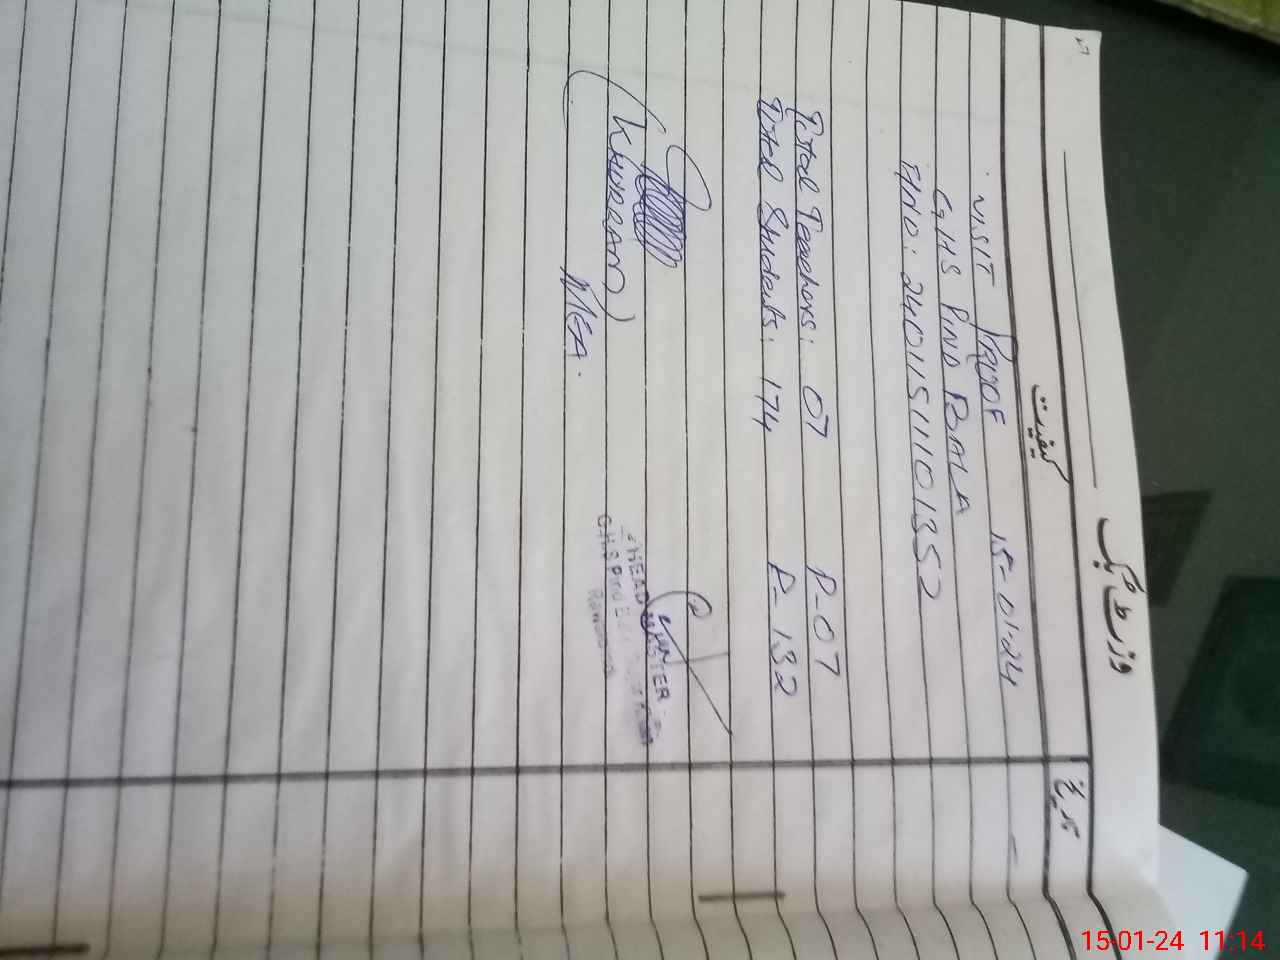 وزٹر بک
کیفیت
تاریخ
VISIT PROOF 15-01-24
GHS PIND BALA
FMID: 24011511101352
Total Teachers: 07 P-07
Total Students: 174 P-132
(KHURRAM)
MEA.
HEAD MASTER
G.H.S Pind
15-01-24 11:14